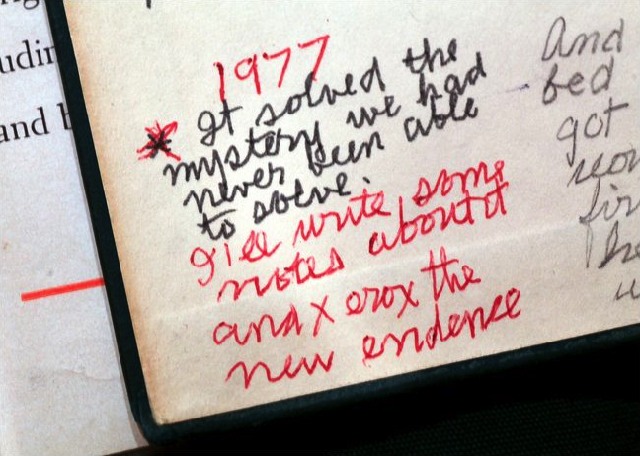 udin
and
1977
* It solved the
mystery we had
never been able
to solve.
I'll write some
notes about it
and xerox the
new evidence
And
bed
got